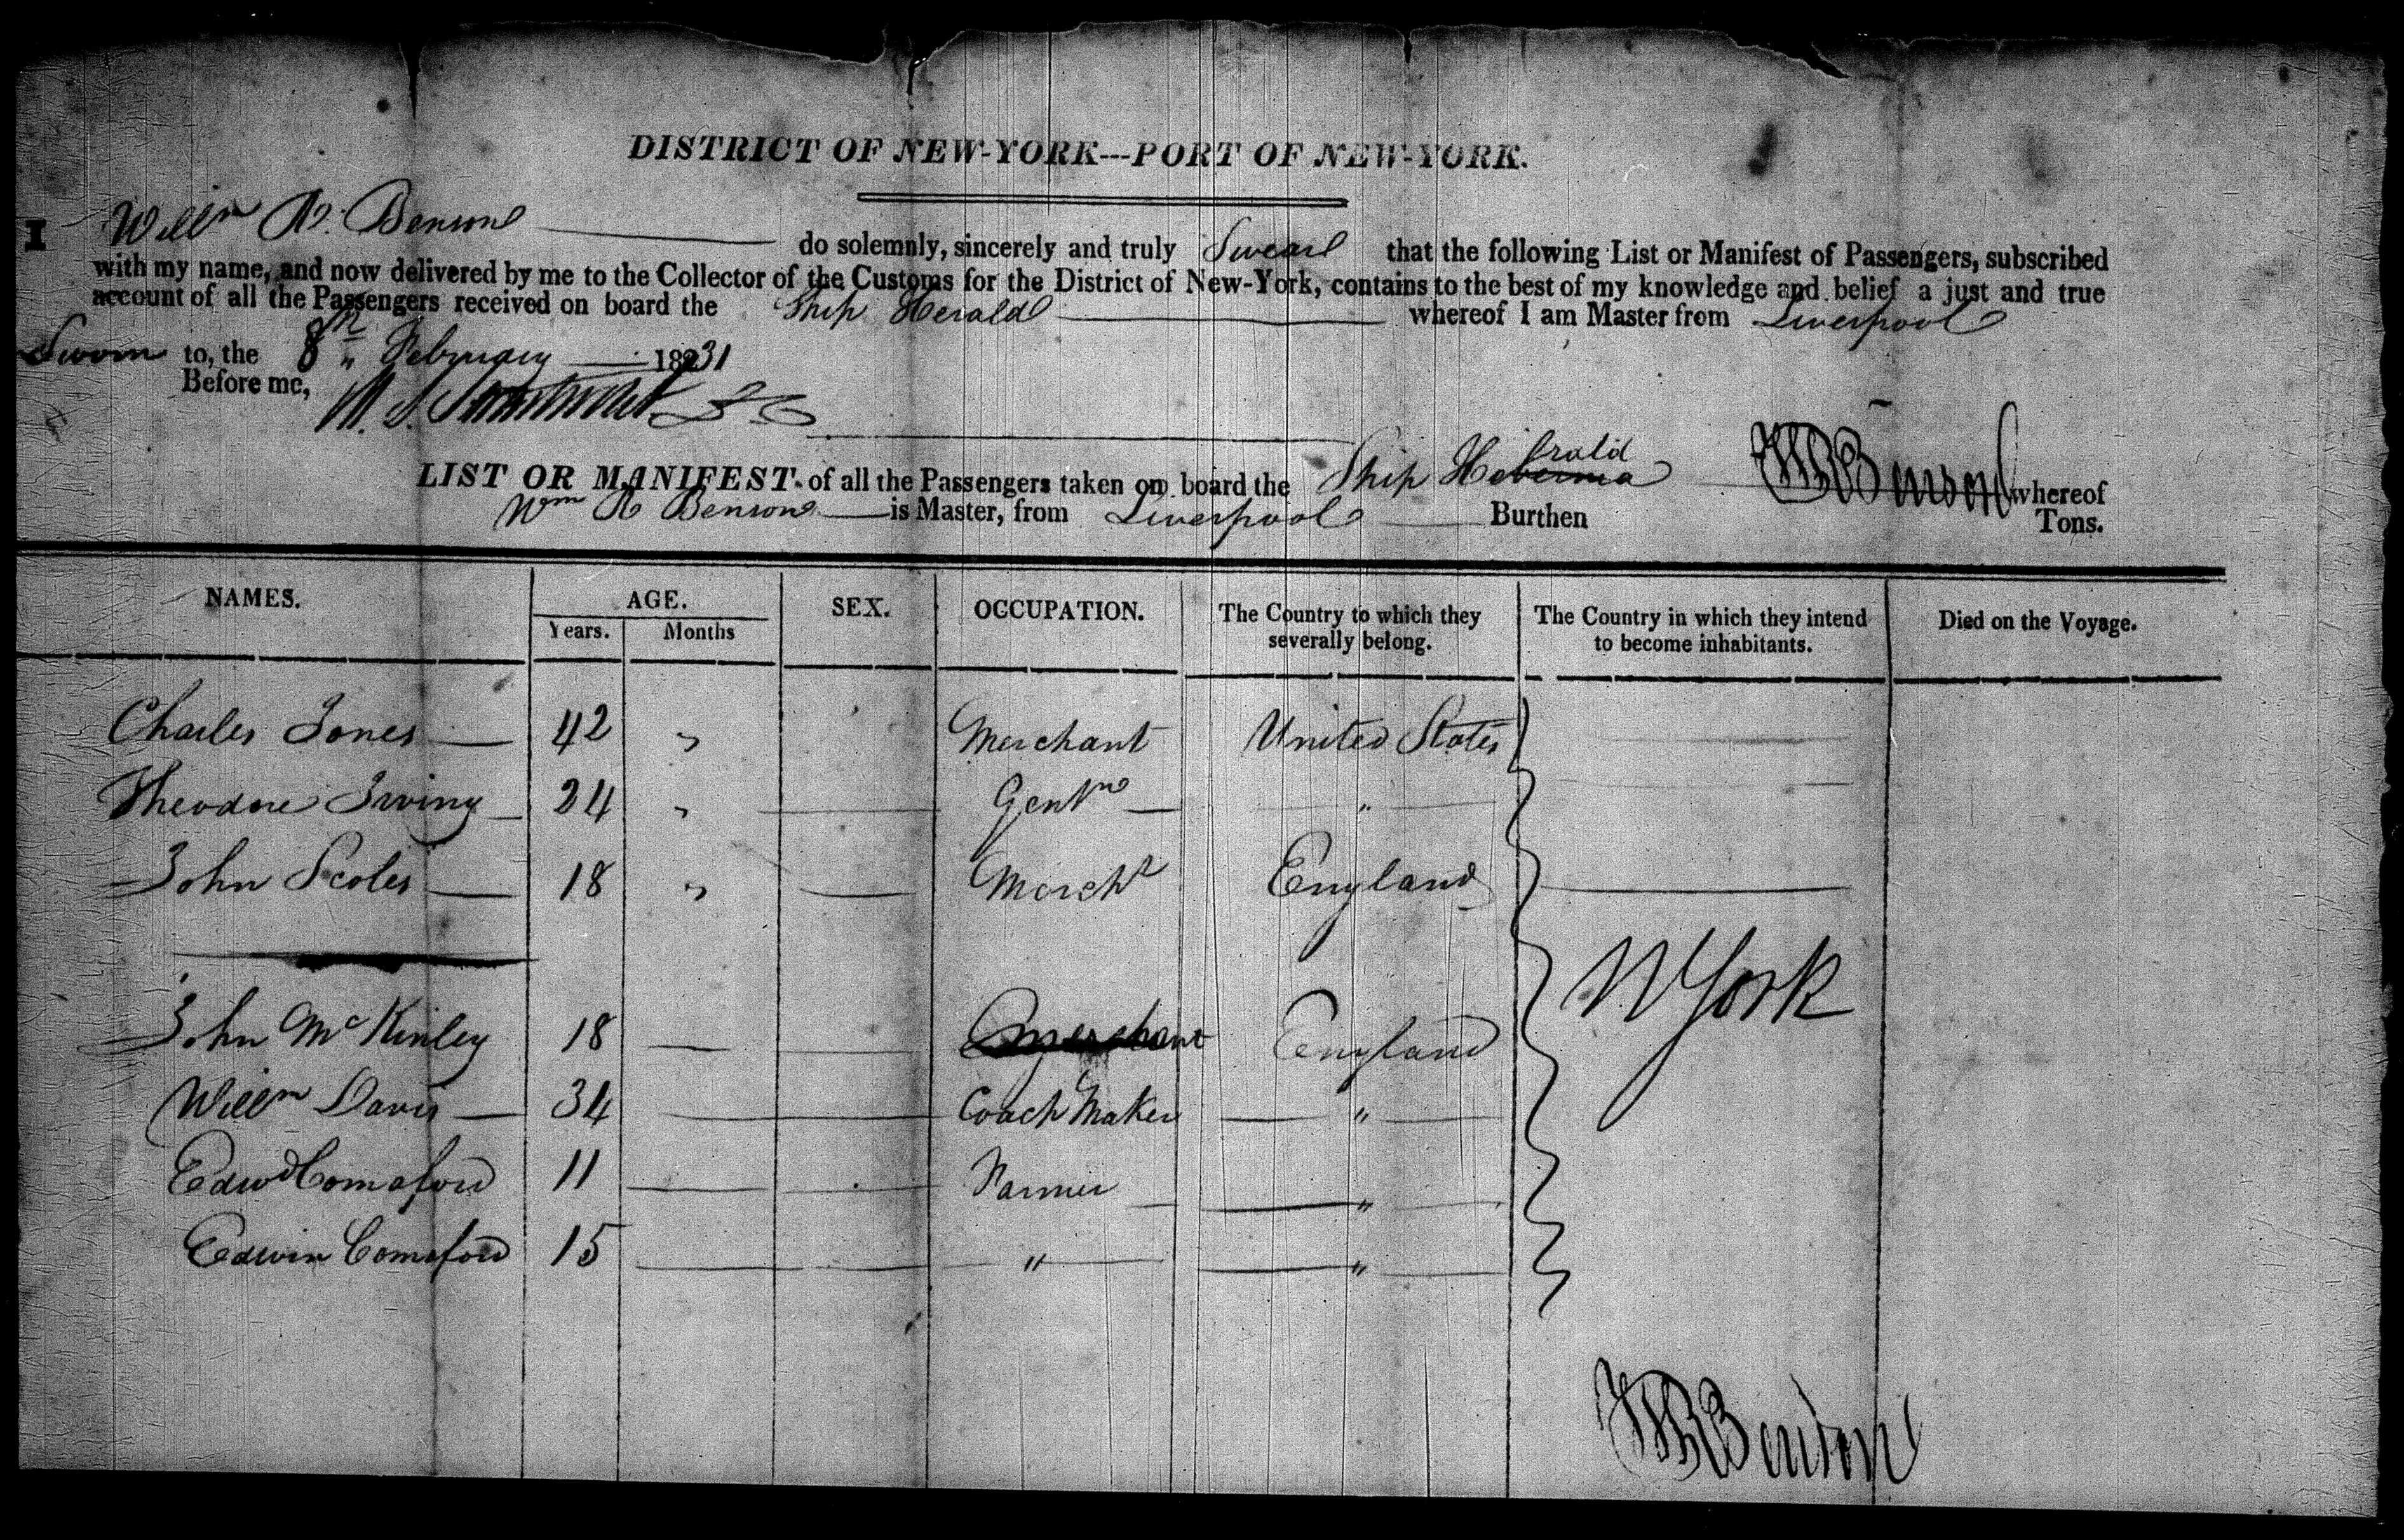 DISTRICT OF NEW-YORK---PORT OF NEW-YORK.
I Willm R. Benson do solemnly, sincerely and truly Swear that the following List or Manifest of Passengers, subscribed
with my name, and now delivered by me to the Collector of the Customs for the District of New-York, contains to the best of my knowledge and belief a just and true
account of all the Passengers received on board the Ship Herald whereof I am Master from Liverpool
Sworn to, the 8th February 18231
Before me,
LIST OR MANIFEST of all the Passengers taken on board the Ship Herald WRBenson whereof
Wm R Benson is Master, from Liverpool Burthen Tons.
NAMES. AGE. SEX. OCCUPATION. The Country to which they severally belong. The Country in which they intend to become inhabitants. Died on the Voyage.
Years. Months
Charles Jones 42 " Merchant United States
Theodore Irving 24 " Gentn "
John Scoles 18 " Mercht England
N York
John McKinley 18 Merchant England
Willm Davis 34 Coach Maker "
Edwd Comaford 11 Farmer "
Edwin Comaford 15 " "
WRBenson